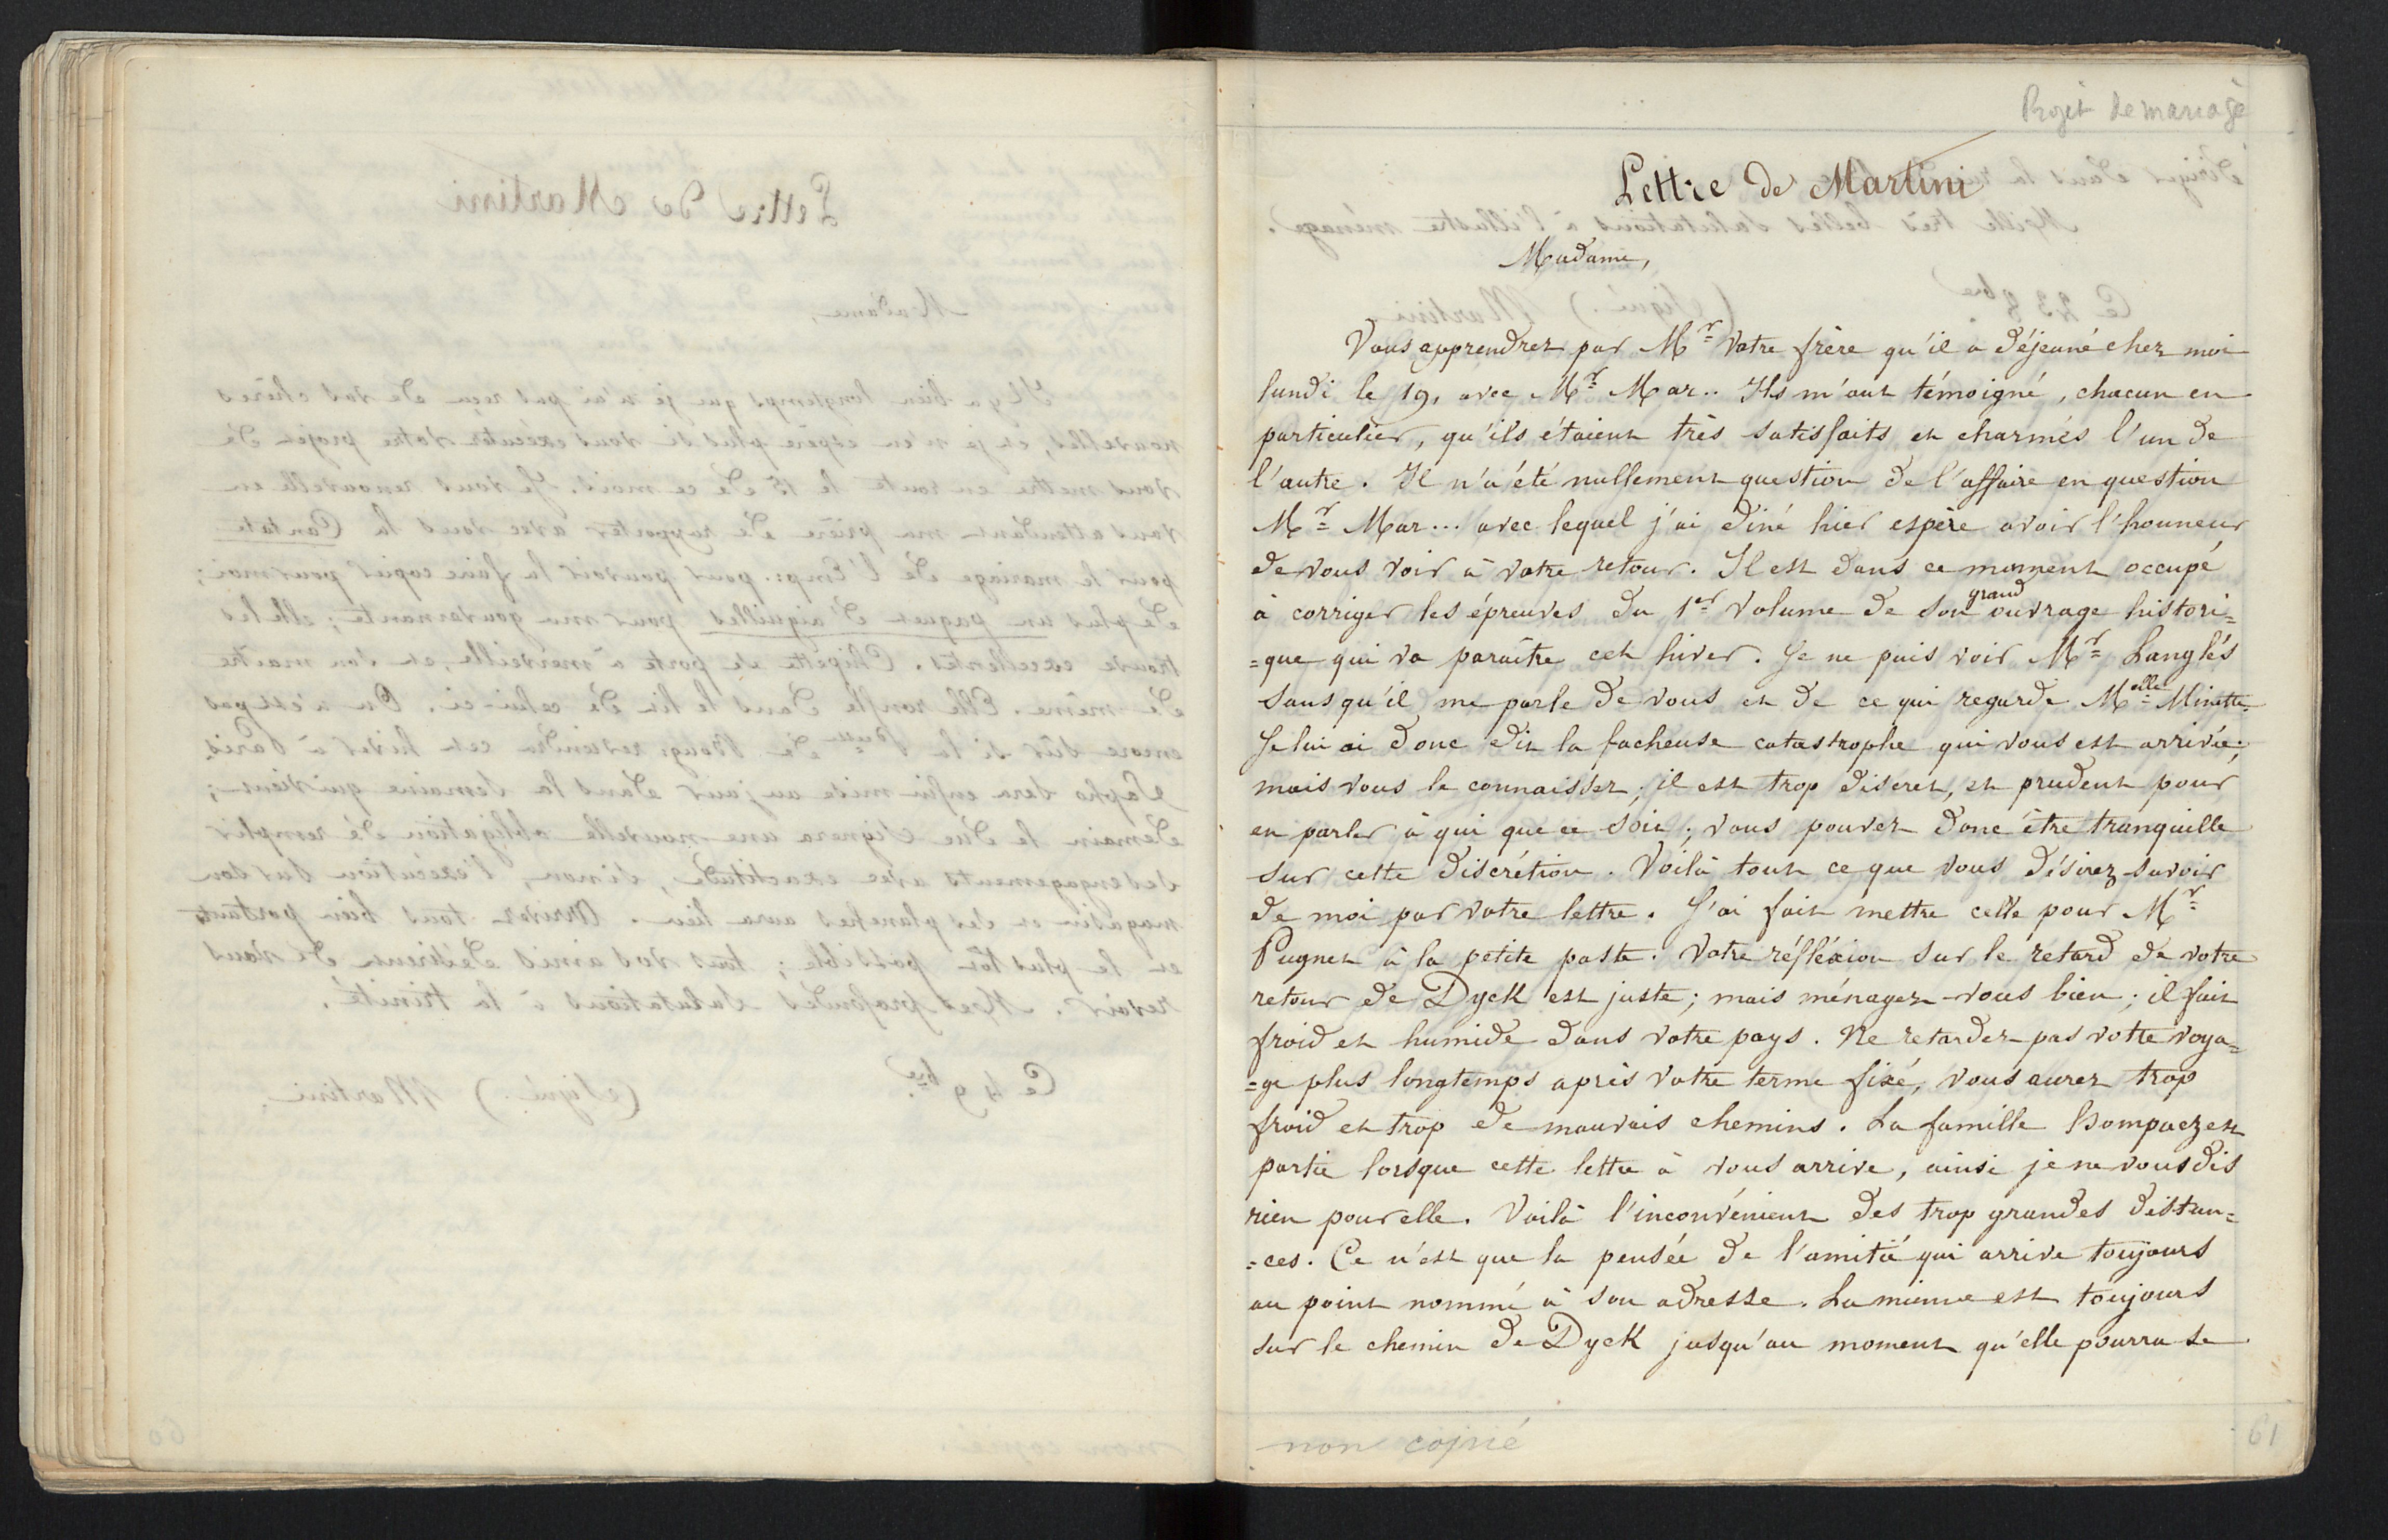 Projet de mariage
Lettre de Martini
Madame,
Vous apprendrez par Mr= Votre frère qu'il a déjeuné chez moi
lundi le 19, avec Mr= Mar.. Ils m'ont témoigné, chacun en
particulier, qu'ils étaient très satisfaits et charmés l'un de
l'autre. Il n'a été nullement question de l'affaire en question
Mr= Mar... avec lequel j'ai diné hier espère avoir l'honneur
de vous voir à votre retour. Il est dans ce moment occupé
à corriger les épreuves du 1er= Volume de son grand ouvrage histori=
=que qui va paraître cet hiver. Je ne puis voir Mr= Langlés
sans qu'il me parle de vous et de ce qui regarde Melle= Minette.
Je lui ai donc dit la facheuse catastrophe qui vous est arrivée;
mais vous le connaissez; il est trop discret, et prudent pour
en parler à qui que ce soit; vous pouvez donc être tranquille
sur cette discrétion. Voilà tout ce que vous désirez savoir
de moi par votre lettre. J'ai fait mettre celle pour Mr=
Pugnet à la petite poste. Votre réfléxion sur le retard de votre
retour de Dyck est juste; mais ménagez-vous bien; il fait
froid et humide dans votre pays. Ne retardez pas votre voya=
=ge plus longtemps après votre terme fixé, vous aurez trop
froid et trop de mauvais chemins. La famille est
partie lorsque cette lettre à vous arrive, ainsi je ne vous dis
rien pour elle. Voilà l'inconvénient des trop grandes distan=
=ces. Ce n'est que la pensée de l'amitié qui arrive toujours
au point nommé à son adresse. La mienne est toujours
sur le chemin de Dyck jusqu'au moment qu'elle pourra se
non copié
61